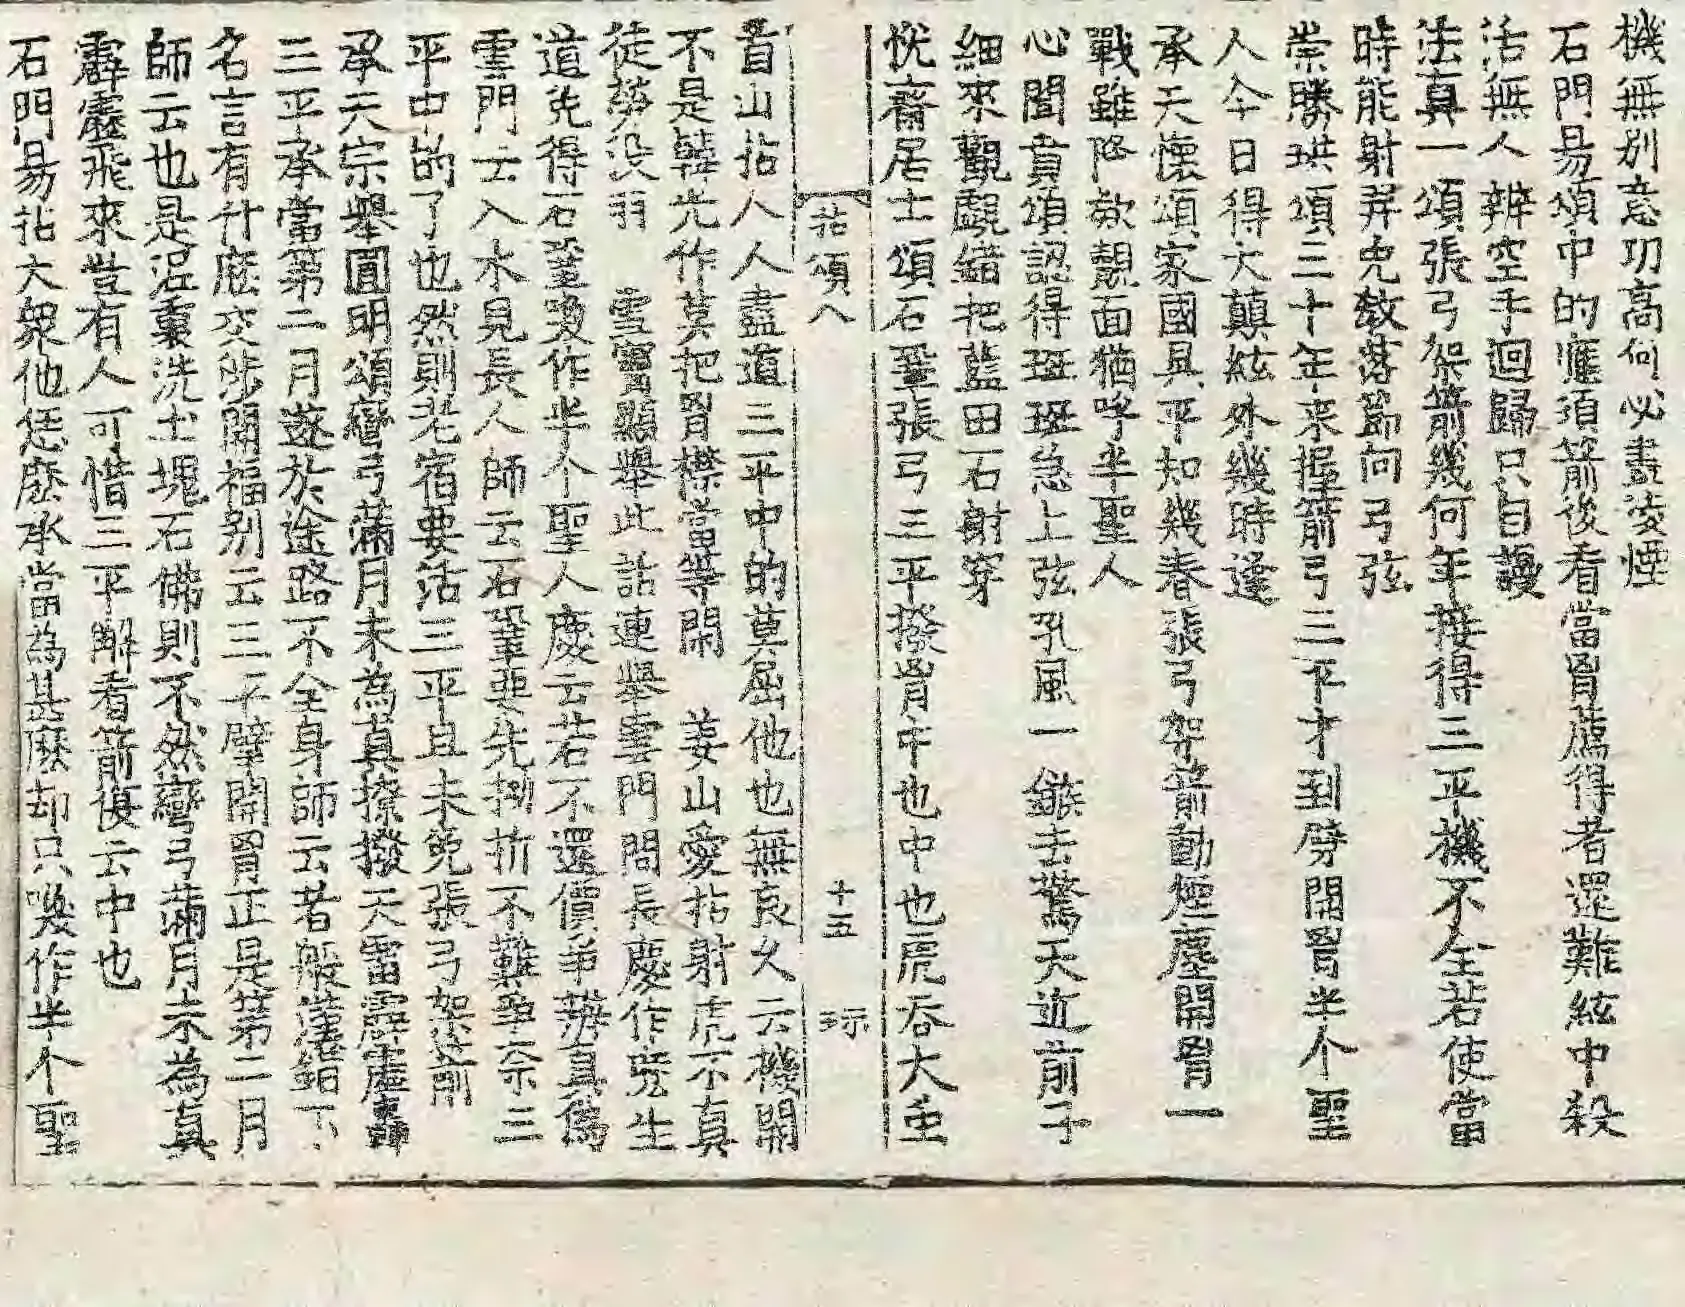 機無别意功高何必畫凌煙
石門易頌中的應須箭後看當胷薦得者還難絃中殺
活無人辨空手迴歸只自謾
法真一頌張弓架箭幾何年接得三平機不全若使當
時能射羿免教落節向弓弦
崇勝珙頌三十年来握箭弓三平才到劈開胷半个聖
人今日得大顛絃外幾時逢
承天懷頌家國具平知幾春張弓架箭動煙塵開胷一
戰雖降欵覿面猶呼半聖人
心聞賁頌認得斑斑急上弦孔風一鏃去驚天近前子
細來觀覷錯把藍田石射穿
恱齋居士頌石鞏張弓三平撥胷中也中也虎呑大虫
拈頌八 十五 
首山拈人人盡道三平中的莫屈他也無良久云機關
不是韓光作莫把胷襟當等閑 姜山愛拈射虎不真
徒勞没羽 雪竇顯舉此話連舉雲門問長慶作麽生
道免得石鞏喚作半个聖人慶云若不還價爭辨真偽
雲門云入水見長人師云石鞏要先拗折不難爭奈三
平中的了也然則老宿要活三平且未免張弓架箭
承天宗舉圓明頌彎弓滿月未為真撩撥天雷霹靂
三平承當第二月遂於途路不全身師云者般漢錯下
名言有什麽交涉開福别云三平擘開胷正是第二月
師云也是泥裏洗土塊石佛則不然彎弓滿月未為真
霹靂飛來豈有人可惜三平解看箭復云中也
石門易拈大衆他恁麽承當為甚麽却只喚作半个聖